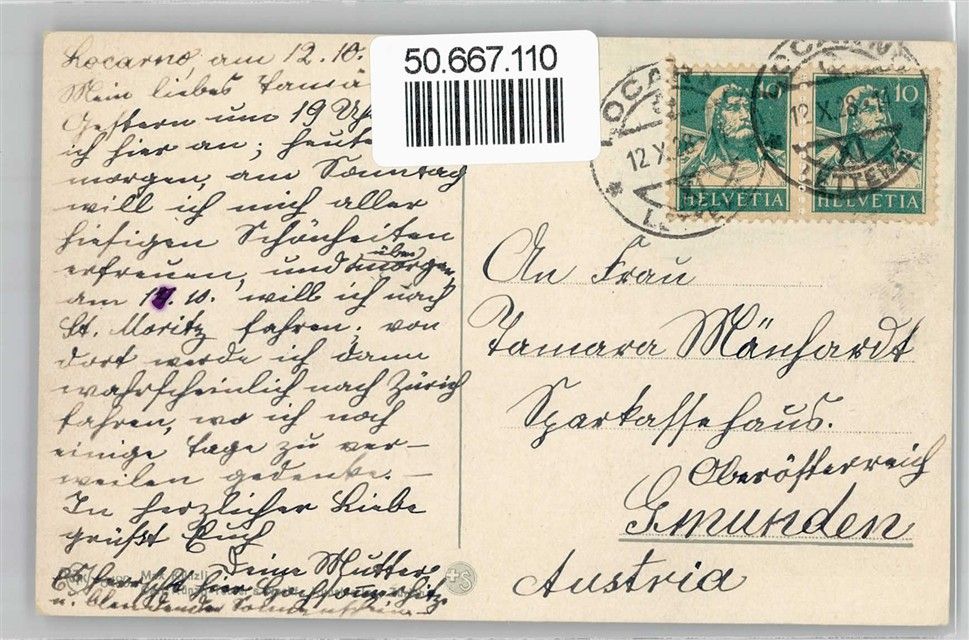 50.667.110
Locarno, am 12.10.
Mein liebes Tamerl
Gestern um 19 Uhr
ich hier an; heute
morgen, am Sonntag
will ich mich aller
hiesigen Schönheiten
erfreuen, und übermorgen,
am 14. 10. will ich nach
St. Moritz fahren; von
dort werde ich dann
wahrscheinlich nach Zürich
fahren, wo ich noch
einige Tage zu ver-
weilen gedenke. –
In herzlicher Liebe
grüßt Euch
Deine Mutter
Es herrscht hier Hochsommerhitze
u. blendender Sonnenschein
LOCARNO
12.X.28
LETTERE
LOCARNO
12.X.28
LETTERE
10
HELVETIA
HELVETIA
An Frau
Tamara Mänhardt
Sparkassehaus.
Oberösterreich
Gmunden
Austria